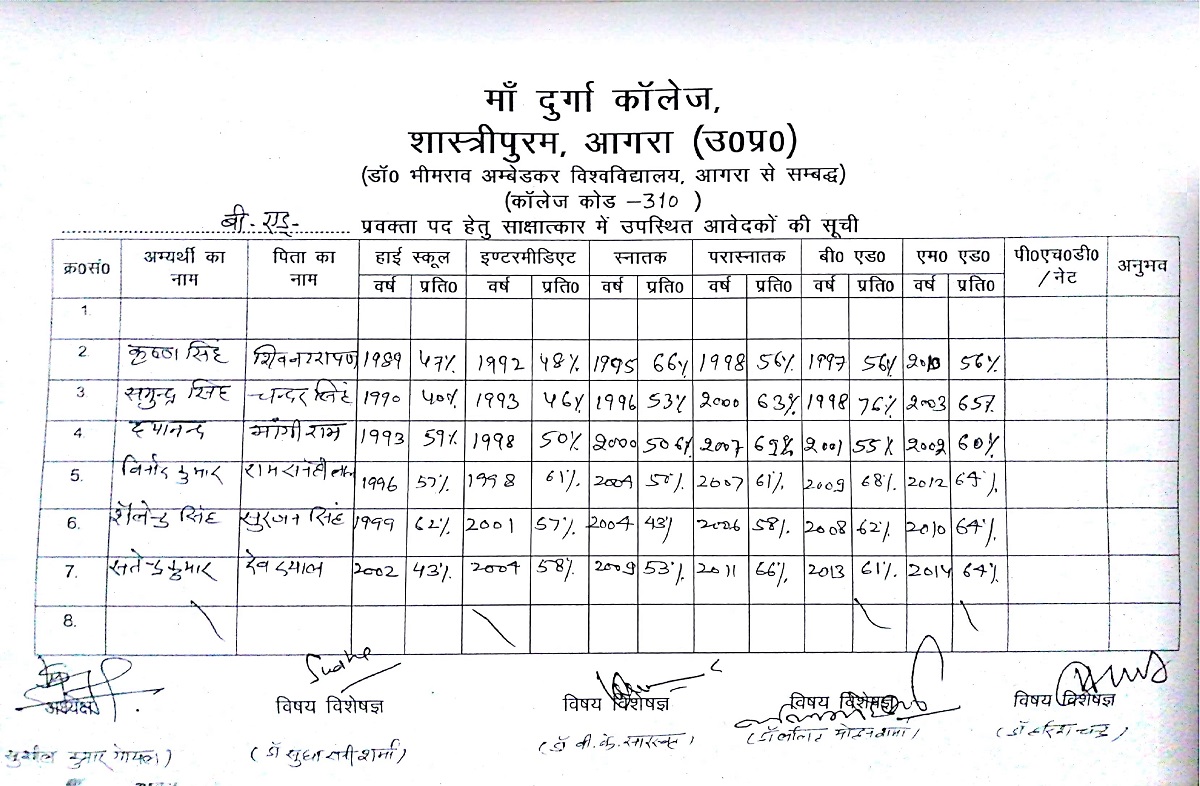 माँ दुर्गा कॉलेज,
शास्त्रीपुरम, आगरा (उ0प्र0)
(डॉ0 भीमराव अम्बेडकर विश्वविद्यालय, आगरा से सम्बद्ध)
(कॉलेज कोड –310 )
बी. एड्. प्रवक्ता पद हेतु साक्षात्कार में उपस्थित आवेदकों की सूची
क्र0सं0 अभ्यर्थी का नाम पिता का नाम हाई स्कूल इण्टरमीडिएट स्नातक परास्नातक बी0 एड0 एम0 एड0 पी0एच0डी0 /नेट अनुभव
वर्ष प्रति0 वर्ष प्रति0 वर्ष प्रति0 वर्ष प्रति0 वर्ष प्रति0 वर्ष प्रति0
1.
2. कृष्ण सिंह शिवनारायण 1989 47% 1992 48% 1995 66% 1998 56% 1997 56% 56%
3. समुन्द्र सिंह चन्दर सिंह 1990 40% 1993 46% 1996 53% 2000 63% 1998 76% 2003 65%
4. दयानन्द मांगीराम 1993 59% 1998 50% 2000 2007 2001 55% 2002 60%
5. विनोद कुमार राम सनेही लाल 1996 57% 1998 61% 2004 50% 2007 61% 2009 68% 2012 64%
6. शैलेन्द्र सिंह सुरजन सिंह 1999 62% 2001 57% 2004 43% 2006 58% 2008 62% 2010 64%
7. सतेन्द्र कुमार देव दयाल 2002 43% 2004 58% 2009 53% 2011 66% 2013 61% 2014 64%
8.
अध्यक्ष विषय विशेषज्ञ विषय विशेषज्ञ विषय विशेषज्ञ विषय विशेषज्ञ
सुशील कुमार गोयल) (डॉ सुधा शर्मा) (डॉ वी. के. सारस्वत) (डॉ ललित मोहन शर्मा) (डॉ हरिश चन्द्र)